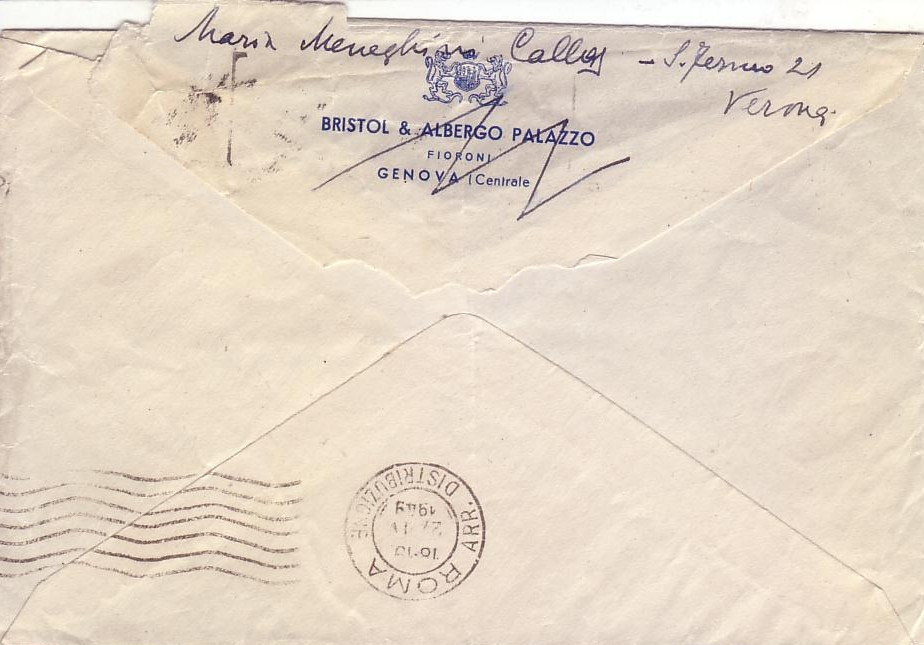 Maria Meneghini Callas - S. Fermo 21
Verona
BRISTOL & ALBERGO PALAZZO
FIORONI
GENOVA (Centrale
ROMA
ARR. DISTRIBUZIONE
1949